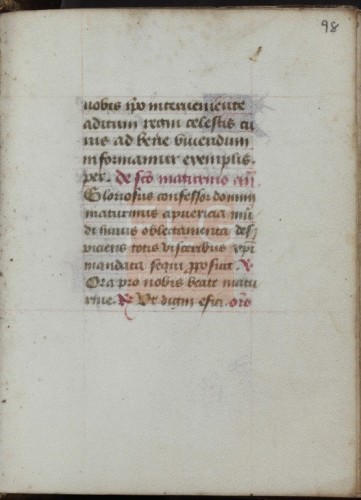 98
nobis ipo interueniente
aditum regni celestis cu
ius ad bene viuendum
informamur exemplis.
per. de sco maturino añ
Gloriosus confessor domini
maturinus a puericia mū
di huius oblectamenta des
piciens totis visceribus xpi
mandata sequi proposuit. v
Ora pro nobis beate matu
rine. R Vt digni effici. oro